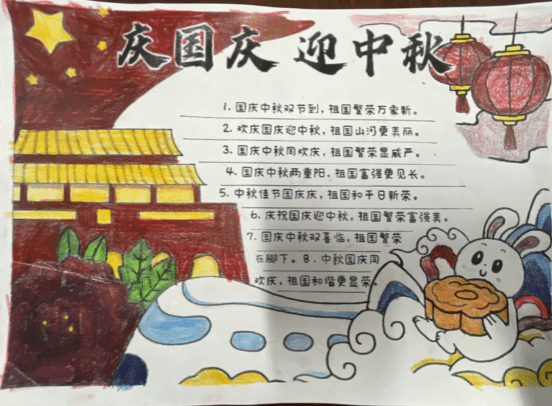 庆国庆 迎中秋
1. 国庆中秋双节到，祖国繁荣万象新。
2. 欢庆国庆迎中秋，祖国山河更美丽。
3. 国庆中秋同欢庆，祖国繁荣显威严。
4. 国庆中秋两重阳，祖国富强更见长。
5. 中秋佳节国庆庆，祖国和平日新荣。
6. 庆祝国庆迎中秋，祖国繁荣富强美。
7. 国庆中秋双喜临，祖国繁荣
在脚下。8. 中秋国庆同
欢庆，祖国和谐更显荣。